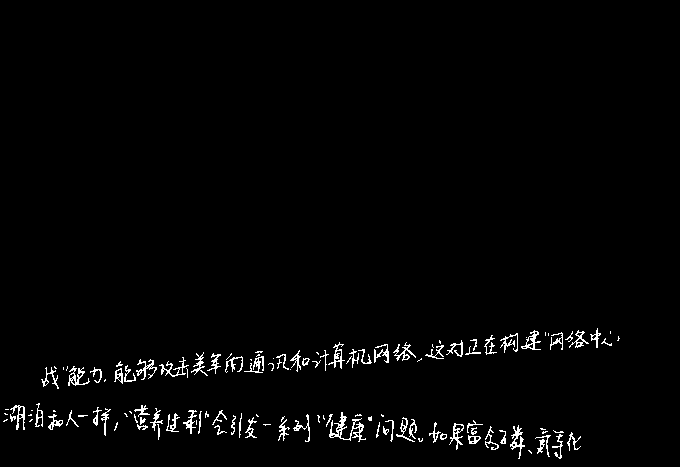 战”能力,能够攻击美军的通讯和计算机网络,这对正在构建“网络中心
湖泊和人一样,“营养过剩”会引发一系列“健康”问题。如果富含磷、氮等化